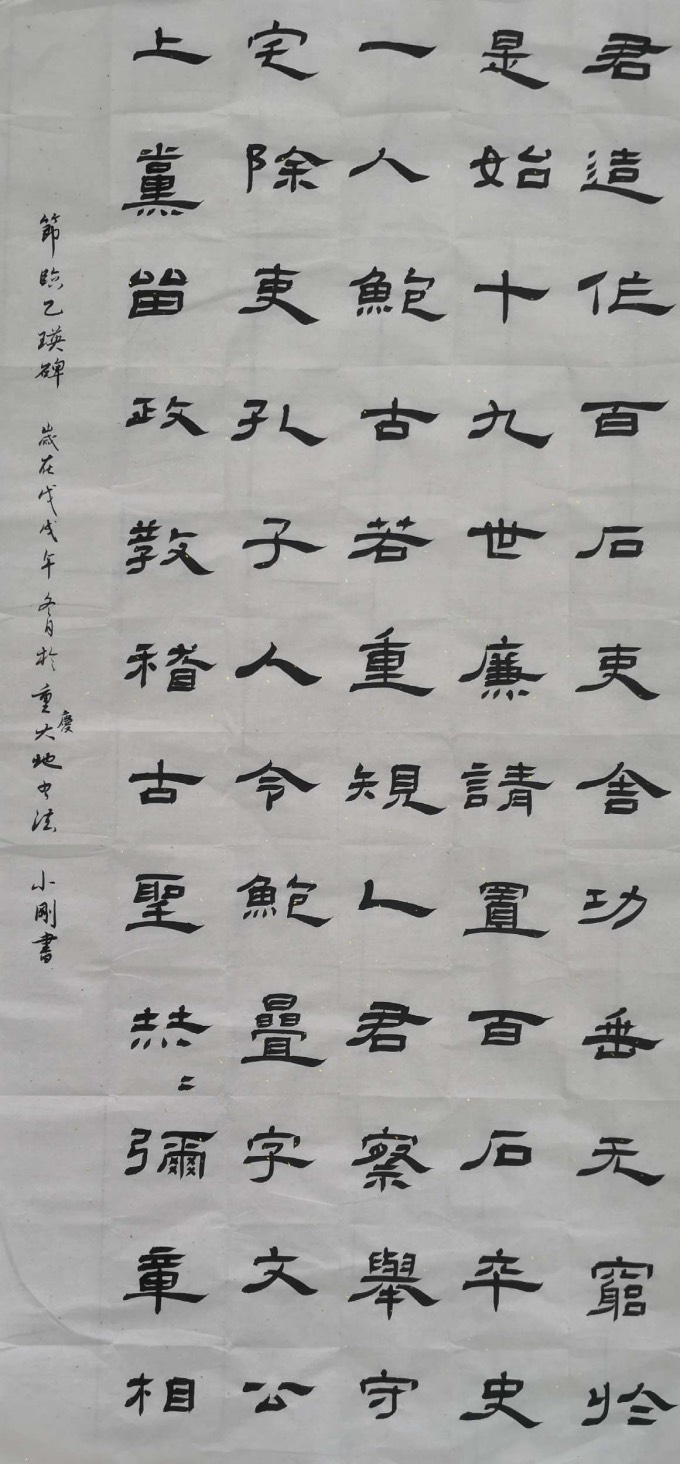 君造作百石吏舍功垂无窮於
是始十九世廉請置百石卒史
一人鮑古若重規乙君察舉守
宅除吏孔子人令鮑疊字文公
上黨留政教稽古聖赫〻彌章相
節臨乙瑛碑 歲在戊戌年冬月於重慶大地书法 小剛書